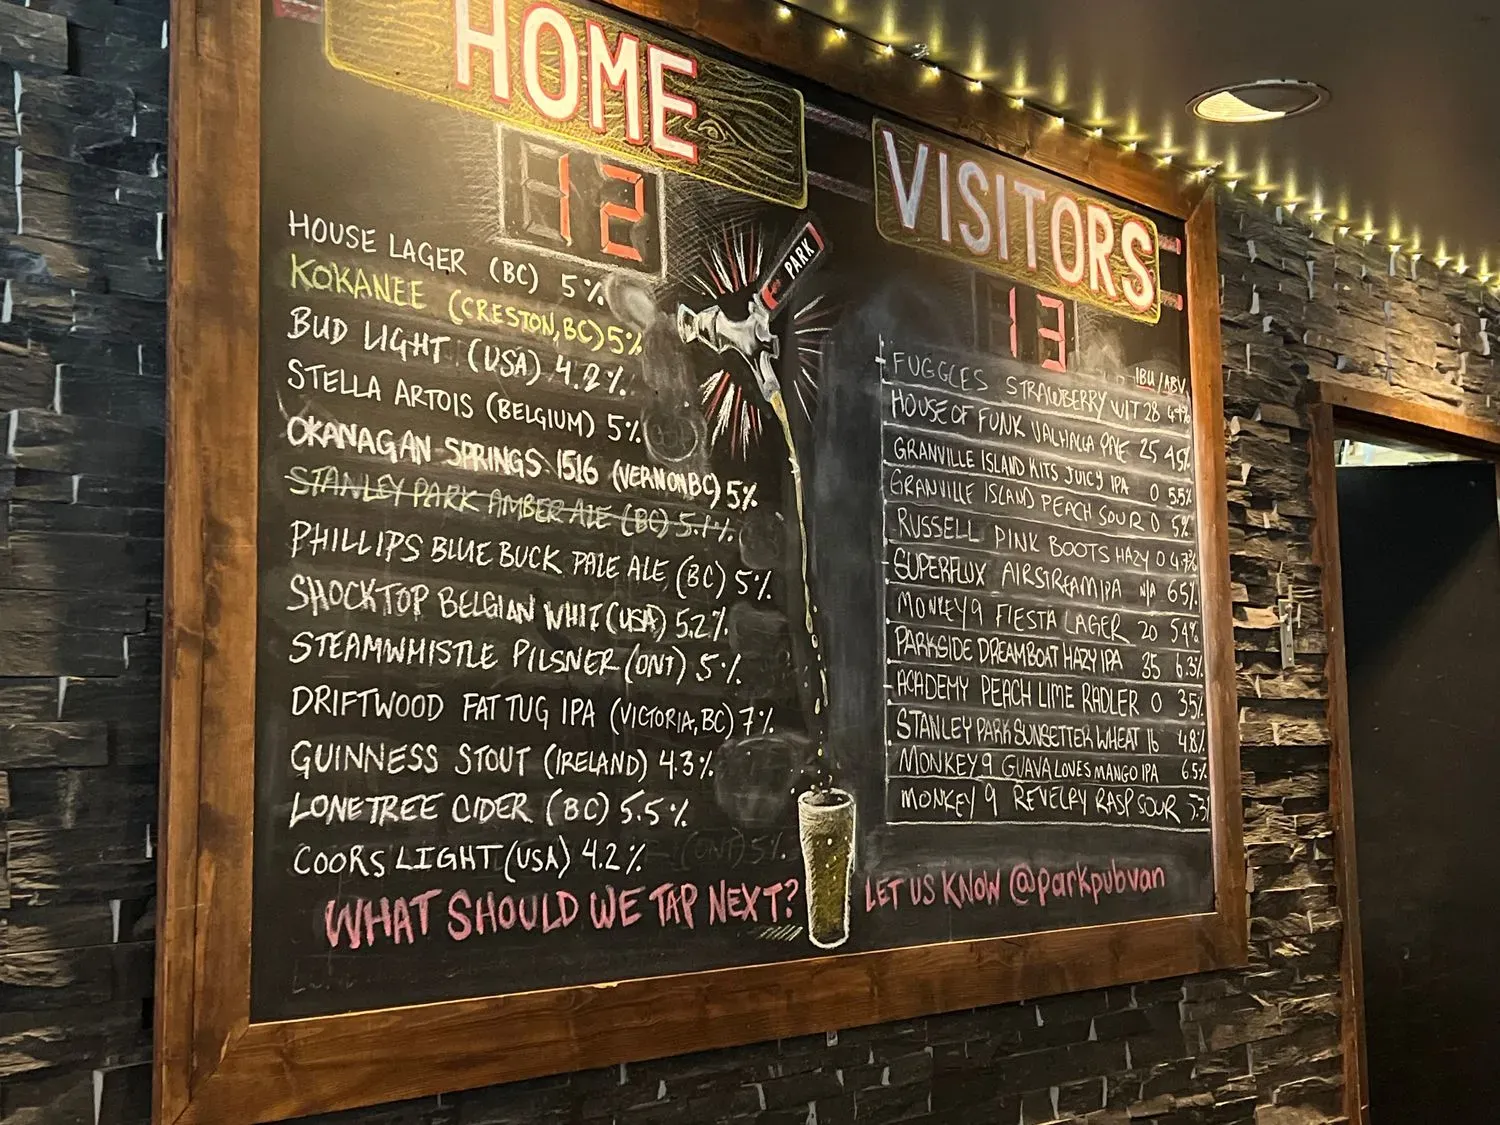 HOME
12
HOUSE LAGER (BC) 5%
KOKANEE (CRESTON, BC) 5%
BUD LIGHT (USA) 4.2%
STELLA ARTOIS (BELGIUM) 5%
OKANAGAN SPRINGS 1516 (VERNON BC) 5%
STANLEY PARK AMBER ALE (BC) 5.1%
PHILLIPS BLUE BUCK PALE ALE (BC) 5%
SHOCKTOP BELGIAN WHIT (USA) 5.2%
STEAMWHISTLE PILSNER (ONT) 5%
DRIFTWOOD FAT TUG IPA (VICTORIA, BC) 7%
GUINNESS STOUT (IRELAND) 4.3%
LONETREE CIDER (BC) 5.5%
COORS LIGHT (USA) 4.2%
(ONT) 5%
WHAT SHOULD WE TAP NEXT?
PARK
VISITORS
13
IBU/ABV
FUGGLES STRAWBERRY WIT 28
HOUSE OF FUNK VALHALLA PALE 25 45%
GRANVILLE ISLAND KITS JUICY IPA 0 55%
GRANVILLE ISLAND PEACH SOUR 0 5%
RUSSELL PINK BOOTS HAZY 0 4.7%
SUPERFLUX AIRSTREAM IPA N/A 65%
MONKEY 9 FIESTA LAGER 20 54%
PARKSIDE DREAMBOAT HAZY IPA 35 6.3%
ACADEMY PEACH LIME RADLER 0 35%
STANLEY PARK SUNSETTER WHEAT 16 4.8%
MONKEY 9 GUAVA LOVES MANGO IPA 65%
MONKEY 9 REVELRY RASP SOUR 5.3%
LET US KNOW @parkpubvan